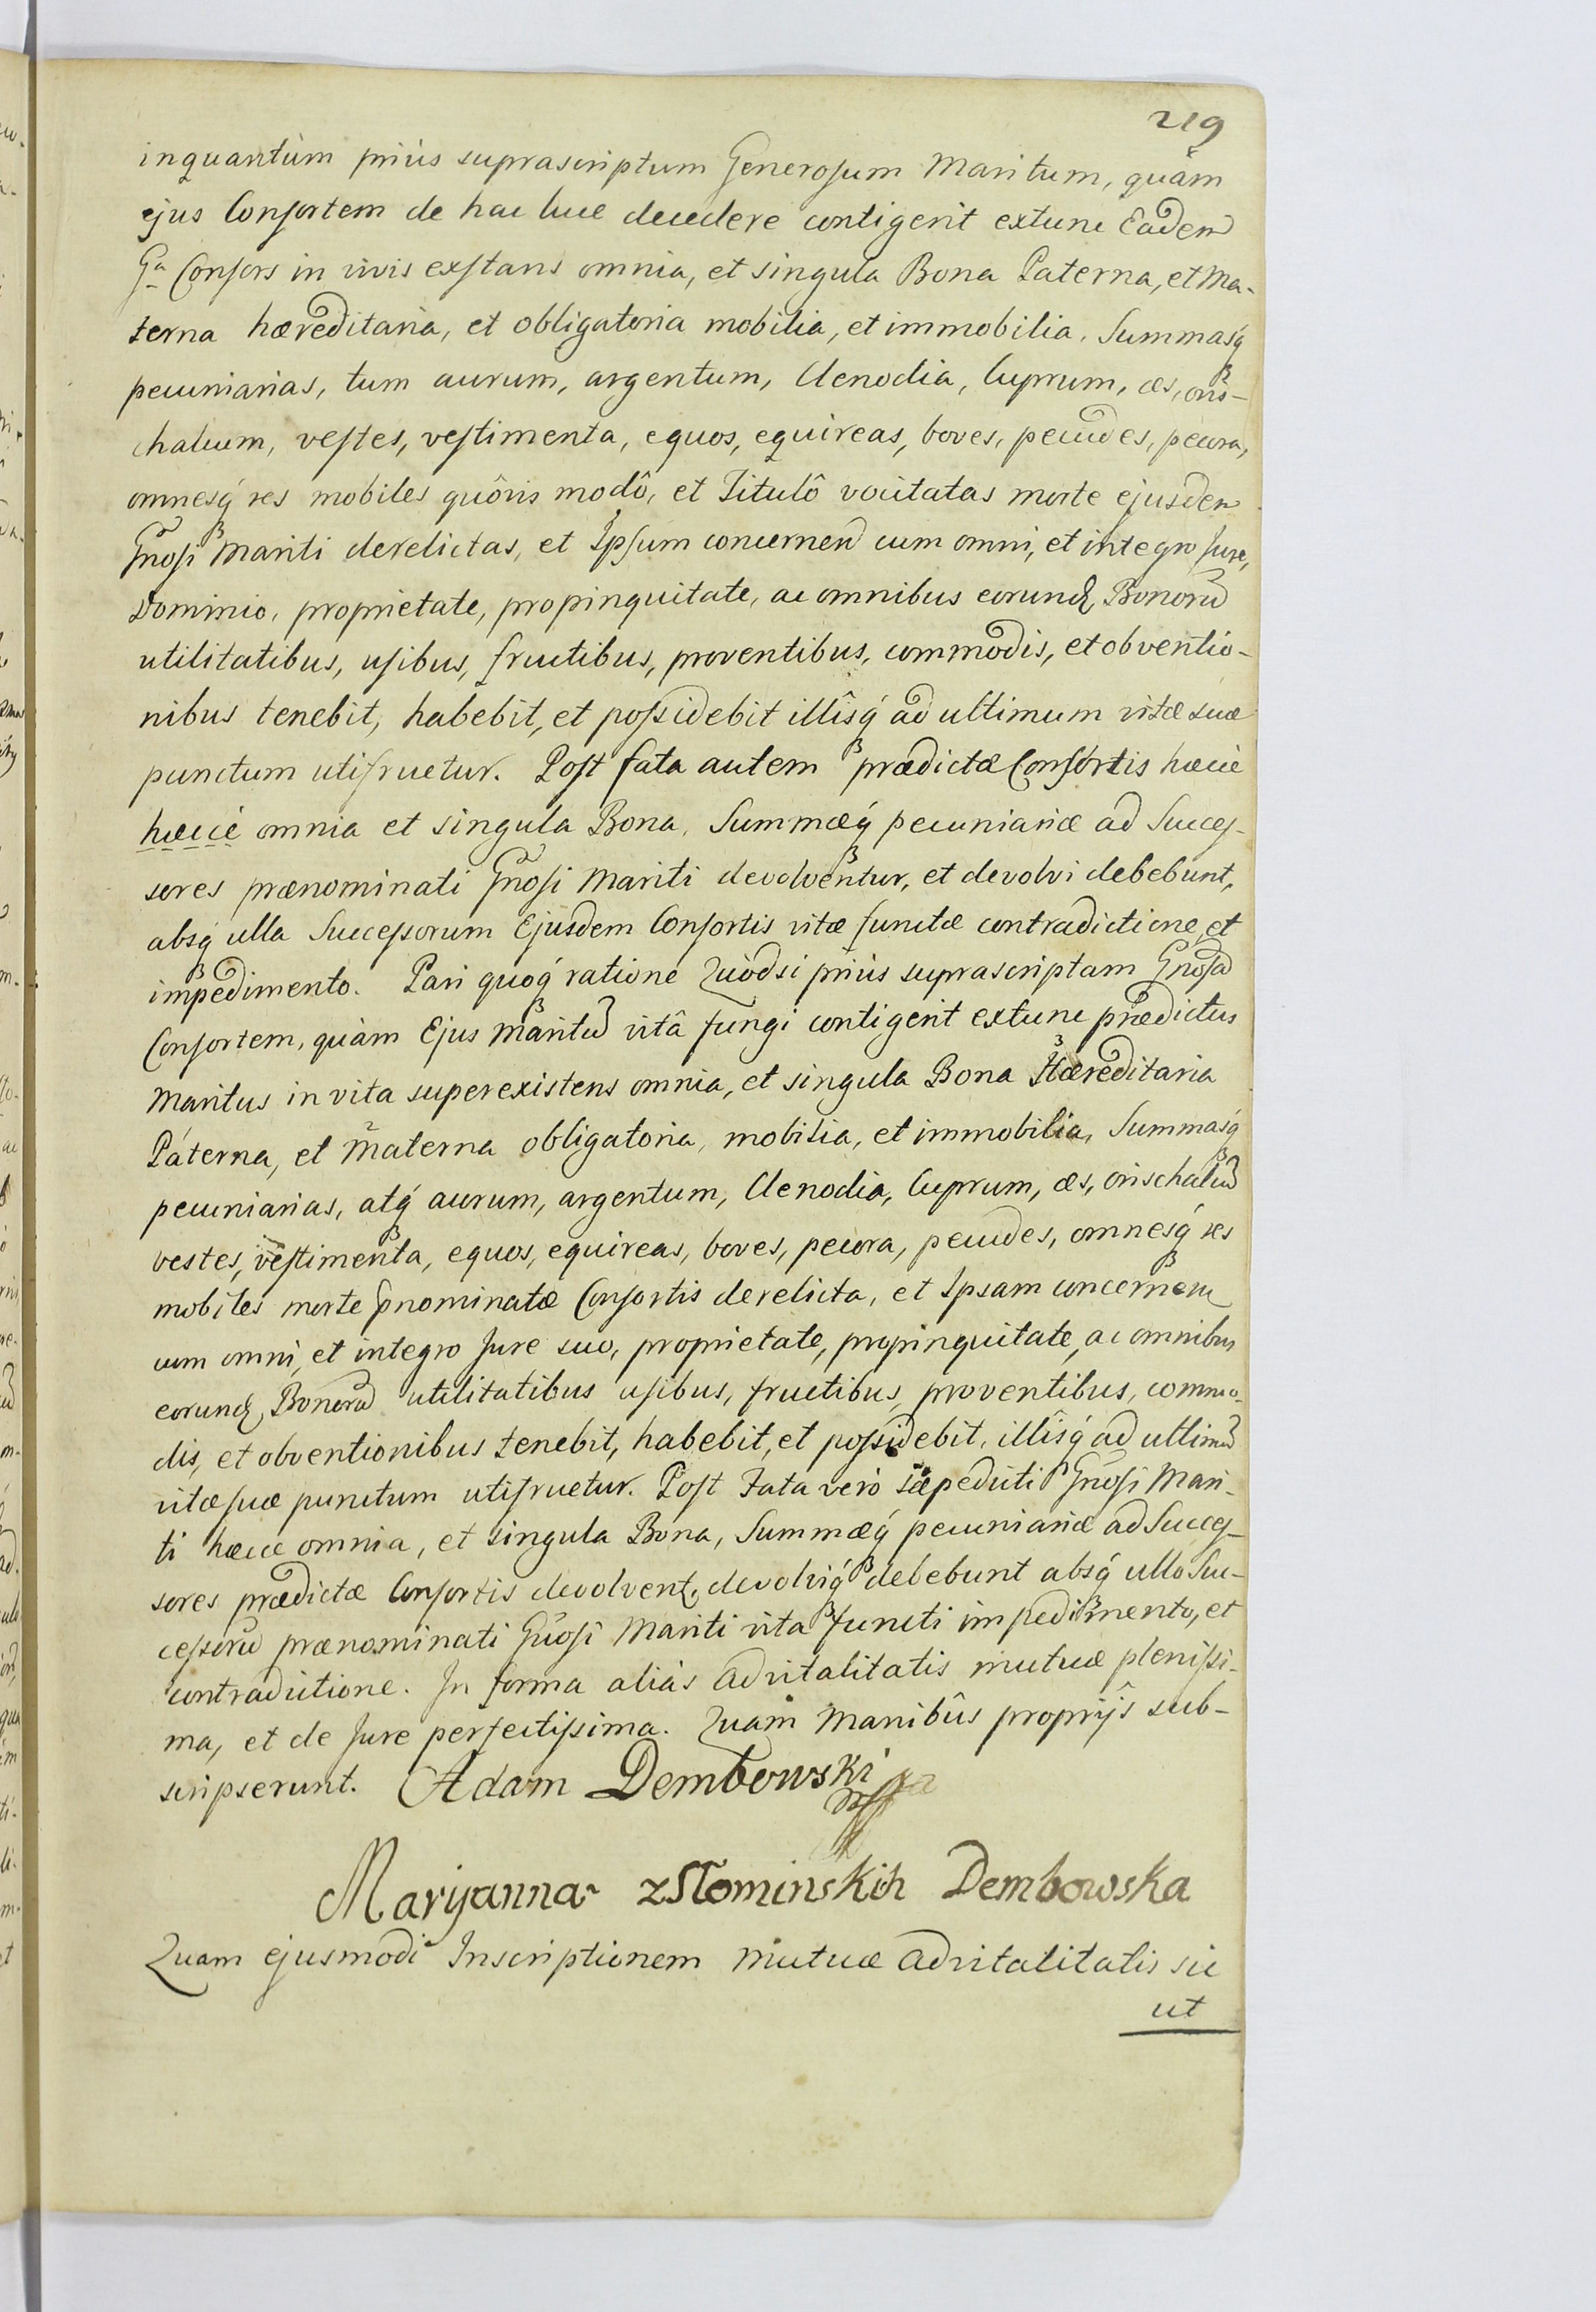 219
inquantùm priùs suprascriptum Generosum Maritum, quàm
ejus Consortem de hac luce decedere contigerit extunc Eadem
Ga Consors in vivis exstans omnia, et singula Bona Paterna, et Ma-
terna hæreditaria, et obligatoria mobilia, et immobilia, Summasq́
pecuniarias, tum aurum, argentum, Clenodia, Cuprum, æs, ori-
chalcum, vestes, vestimenta, equos, equireas, boves, pecudes, pecora,
omnesq́ res mobiles quôvis modô, et Titulô vocitatas morte ejusdem
Gnosi Mariti derelictas, et Ipsum concernen cum omni, et integro Jure,
Dominio, proprietate, propinquitate, ac omnibus eorund Bonorũ
utilitatibus, usibus, fructibus, proventibus, commodis, et obventio-
nibus tenebit, habebit, et possidebit illîsq́ ad ultimum vitæ suæ
punctum utifruetur. Post fata autem prædictæ Consortis hæcce
hæccè omnia et singula Bona, Summæq́ pecuniariæ ad Succes-
sores prænominati Gnosi Mariti devolventur, et devolvi debebunt,
absq́ ulla Successorum Ejusdem Consortis vitæ functæ contradictione, et
impedimento. Pari quoq́ ratione Quòdsi priùs suprascriptam Gnosã
Consortem, quàm Ejus Maritũ vitâ fungi contigerit extunc prædictus
Maritus in vita superexistens omnia, et singula Bona Hæreditaria
Paterna, et Materna obligatoria, mobilia, et immobilia, Summasq́
pecuniarias, atq́ aurum, argentum, Clenodia, Cuprum, æs, orischalcũ
vestes, vestimenta, equos, equireas, boves, pecora, pecudes, omnesq́ res
mobiles morte pnominatæ Consortis derelicta, et Ipsam concernen
cum omni, et integro Jure suo, proprietate, propinquitate, ac omnibus
eorund Bonorũ utilitatibus usibus, fructibus, proventibus, commo-
dis, et obventionibus tenebit, habebit, et possidebit, illîsq́ ad ultimũ
vitæ suæ punctum utifruetur. Post Fata verò sæpedicti Gnosi Mari-
ti hæcce omnia, et singula Bona, Summæq́ pecuniariæ ad Succes-
sores prædictæ Consortis devolvent, devolviq́ debebunt absq́ ullo Suc-
cessorũ prænominati Gnosi Mariti vita functi impedimento, et
contradictione. In forma aliàs Advitalitatis mutuæ plenissi-
ma, et de Jure perfectissima. Quam Manibûs proprijs sub-
scripserunt. Adam Dembowski
Maryanna z Słominskich Dembowska
Quam ejusmodi Inscriptionem mutuæ Advitalitatis sic
ut